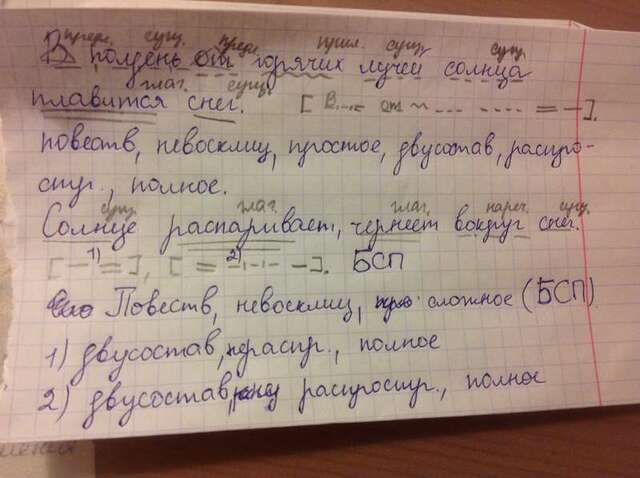 предл. сущ. предл. прил. сущ. сущ.
В полдень от горячих лучей солнца
глаг. сущ.
плавится снег. [В... от ~ ... .... = –].
повеств, невосклиц, простое, двусостав, распро-
стр., полное.
сущ. глаг. глаг. нареч. сущ.
Солнце распаривает, чернеет вокруг снег.
[– 1) =], [= 2) –.–.– –]. БСП
Повеств, невосклиц, сложное (БСП)
1) двусостав, нераспр., полное
2) двусостав, распростр., полное